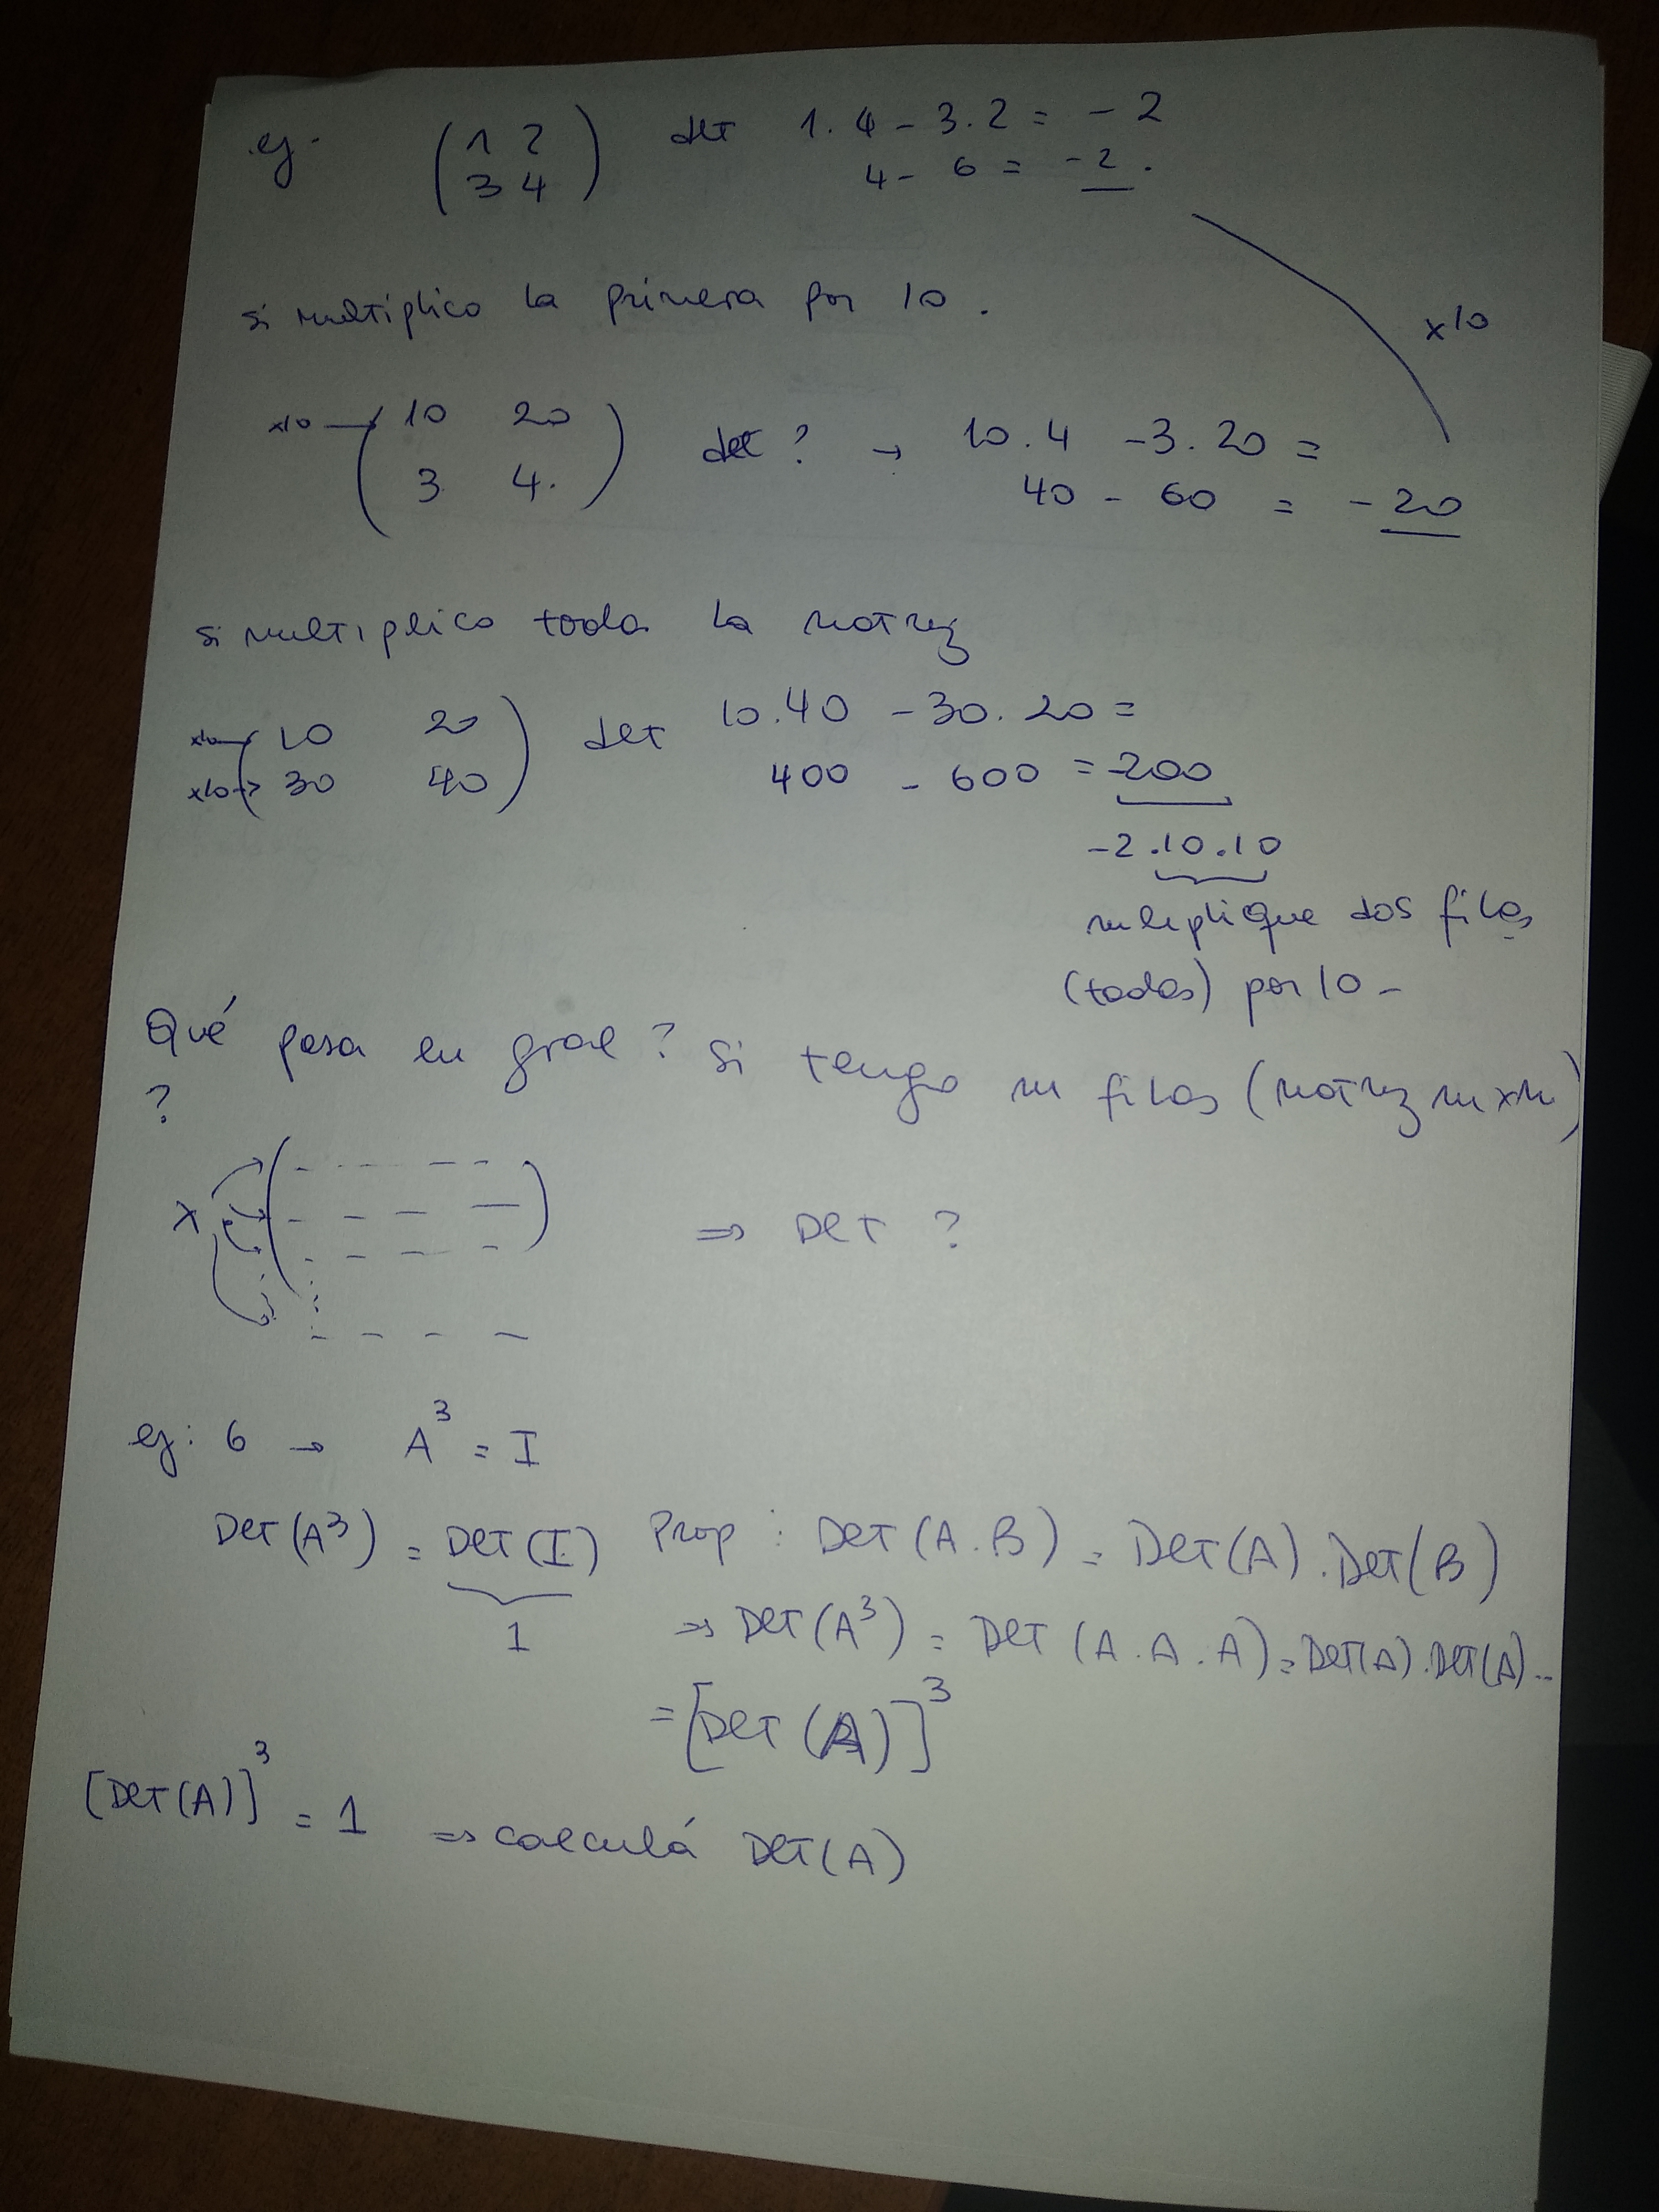 ej. ( 1 2 det 1.4 - 3.2 = - 2
3 4 ) 4 - 6 = - 2.
si multiplico la primera por 10.
x10
x10 → ( 10 20 det ? → 10.4 - 3.20 =
3 4. ) 40 - 60 = - 20
si multiplico toda la matriz
x10 → ( 10 20 det 10.40 - 30.20 =
x10 → 30 40 ) 400 - 600 = -200
-2.10.10
multiplique dos filas
(todas) por 10 -
Qué pasa en gral? Si tengo m filas (matriz mxm)
?
x ( - - - - ) ⇒ Det ?
ej: 6 → A³ = I
Det(A³) = Det(I) Prop : Det(A.B) = Det(A).Det(B)
1 ⇒ Det(A³) = Det(A.A.A) = Det(A).Det(A)...
= [Det(A)]³
[Det(A)]³ = 1 ⇒ calculá Det(A)